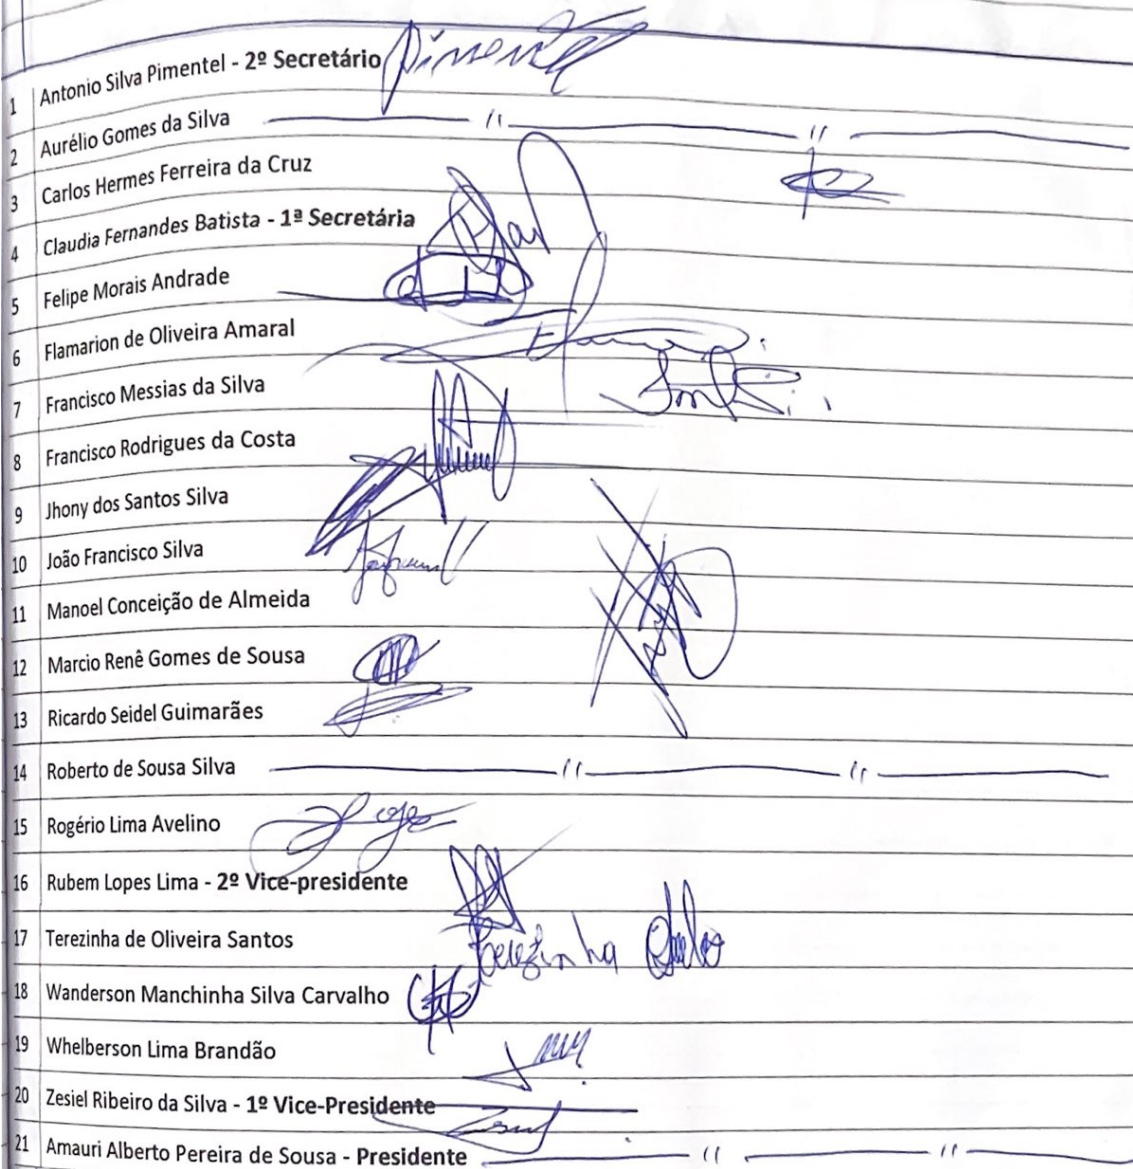 1 Antonio Silva Pimentel - 2º Secretário Pimentel
2 Aurélio Gomes da Silva — // — // —
3 Carlos Hermes Ferreira da Cruz
4 Claudia Fernandes Batista - 1ª Secretária
5 Felipe Morais Andrade
6 Flamarion de Oliveira Amaral
7 Francisco Messias da Silva
8 Francisco Rodrigues da Costa
9 Jhony dos Santos Silva
10 João Francisco Silva
11 Manoel Conceição de Almeida
12 Marcio Renê Gomes de Sousa
13 Ricardo Seidel Guimarães
14 Roberto de Sousa Silva — // — // —
15 Rogério Lima Avelino
16 Rubem Lopes Lima - 2º Vice-presidente
17 Terezinha de Oliveira Santos Terezinha
18 Wanderson Manchinha Silva Carvalho
19 Whelberson Lima Brandão
20 Zesiel Ribeiro da Silva - 1º Vice-Presidente
21 Amauri Alberto Pereira de Sousa - Presidente — // — // —